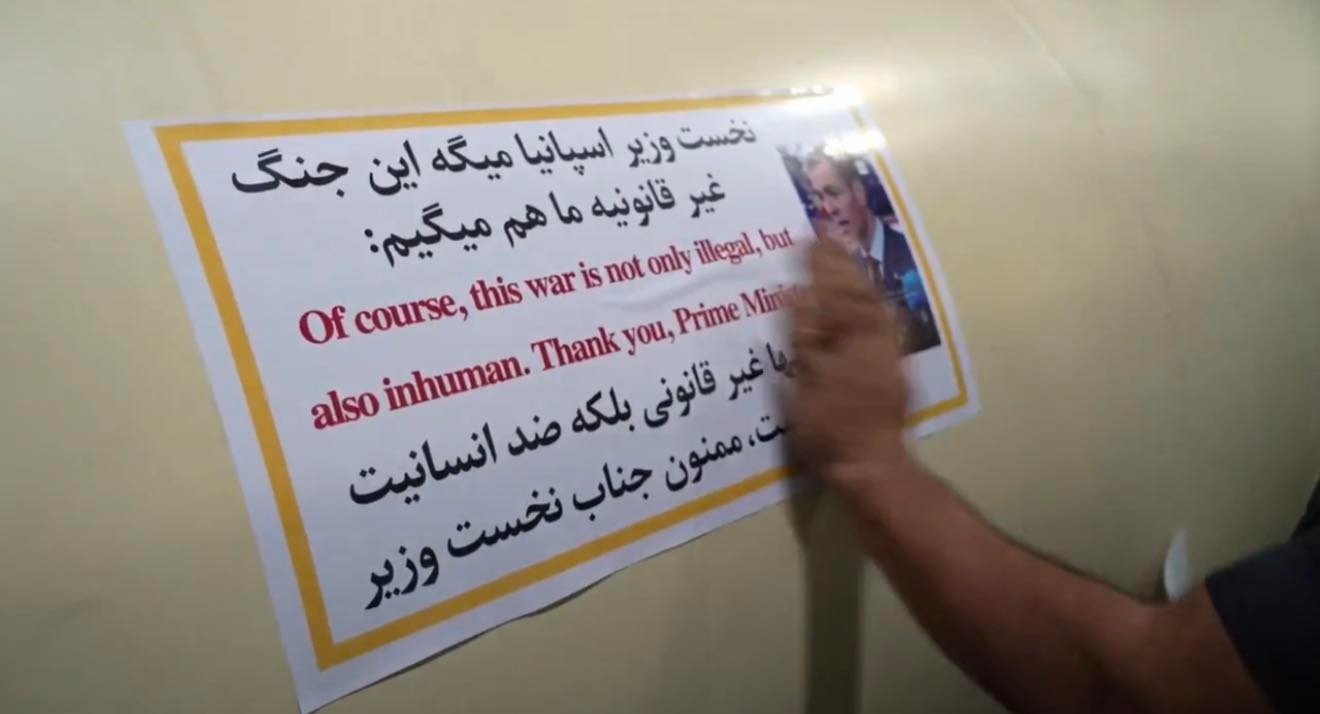 نخست وزیر اسپانیا میگه این جنگ
غیر قانونیه ما هم میگیم:
Of course, this war is not only illegal, but
also inhuman. Thank you, Prime
غیر قانونی بلکه ضد انسانیت
ممنون جناب نخست وزیر